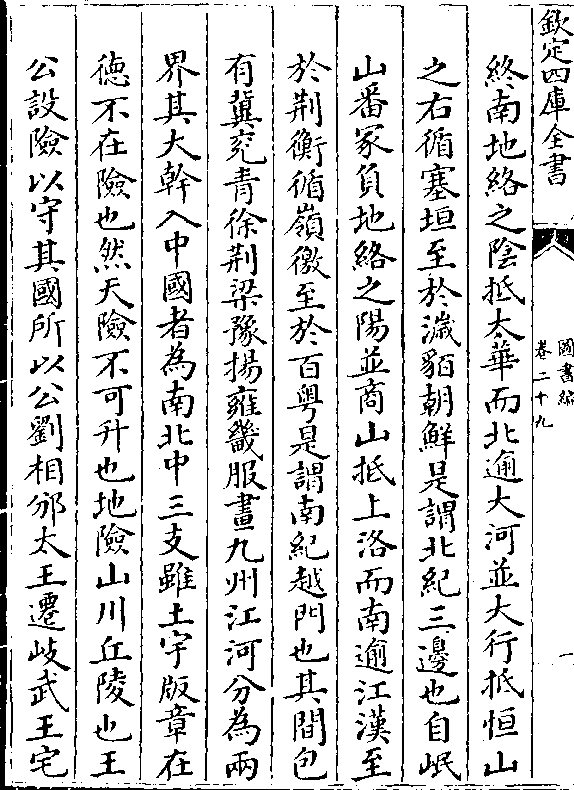 欽定四庫全書
圖書編
卷二十九
一
終南地絡之隂抵太華而北逾大河並大行抵恒山
之右循塞垣至於濊貊朝鮮是謂北紀三邊也自岷
山嶓冢負地絡之陽並商山抵上洛而南逾江漢至
於荆衡循嶺徼至於百粤是謂南紀越門也其間包
有冀兖青徐荆梁豫揚雍畿服畫九州江河分為兩
界其大幹入中國者為南北中三支雖土宇版章在
徳不在險也然天險不可升也地險山川丘陵也王
公設險以守其國所以公劉相邠太王遷岐武王宅